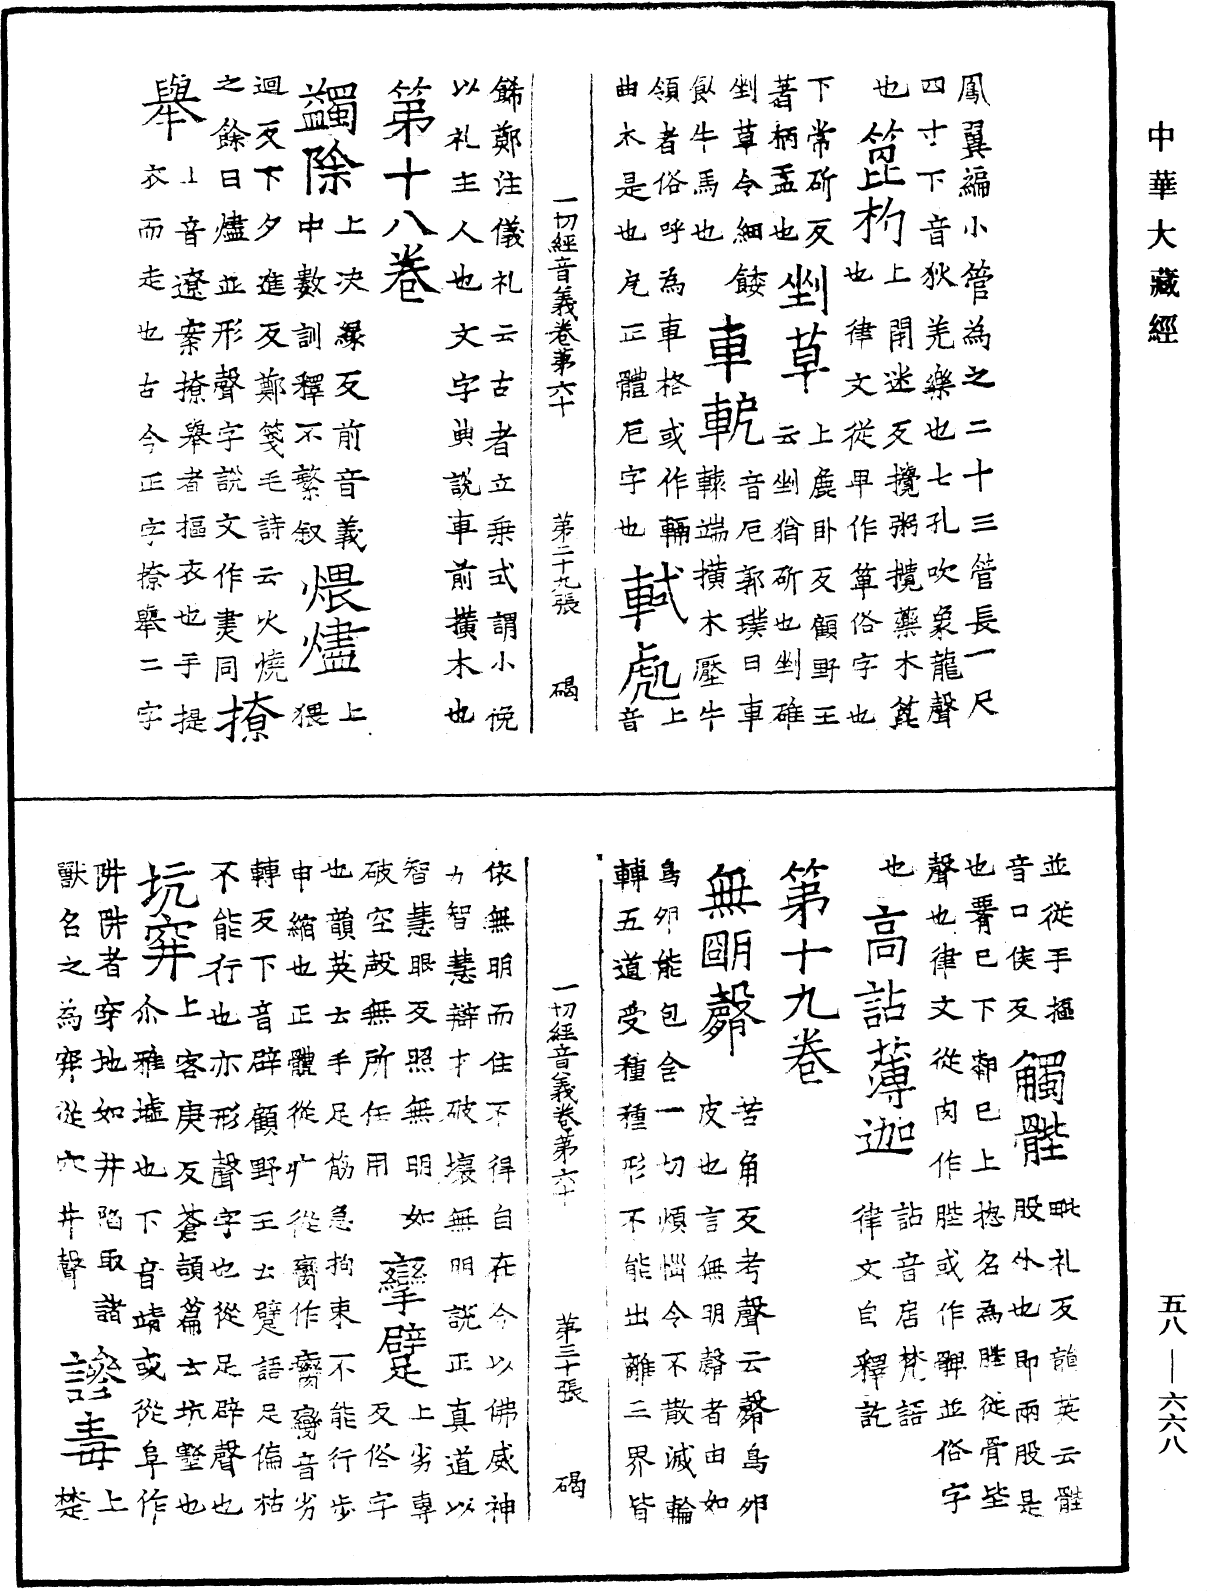 中華大藏經
鳳翼編小管為之二十三管長一尺
四寸下音狄羌樂也七孔吹象龍聲
也 箆杓 上閉迷反攪粥攪藥木箆
也律文從卑作箄俗字也
下常斫反
著柄盂也 剉草 上麁卧反顧野王
云剉猶斫也剉碓
剉草令細餧
飤牛馬也 車軶 音厄郭璞曰車
轅端横木壓牛
領者俗呼為車格或作輛
曲木是也戹正體厄字也 軾處 上
音
一切經音義卷第六十 第二十九張 碣
餙鄭注儀礼云古者立乗式謂小俛
以礼主人也文字典說車前横木也
第十八卷
蠲除 上决緣反前音義
中數訓釋不繁叙 煨燼 上
猥
迴反下夕進反鄭箋毛詩云火燒
之餘曰燼並形聲字說文作㶳同 撩
舉 上音遼案撩舉者摳衣也手提
衣而走也古今正字撩舉二字
並從手摳
音口侯反 觸䏶 毗礼反韻英云䏶
股外也即兩股是
也臀已下䣛已上揔名為䏶從骨坒
聲也律文從肉作䏶或作髀並俗字
也 高詀薄迦 詀音店梵語
律文自釋訖
第十九卷
無朙㲉 苦角反考聲云㲉鳥夘
皮也言無明㲉者由如
鳥夘能包含一切煩惱令不散滅輪
轉五道受種種形不能出離三界皆
一切經音義卷第六十 第三十張 碣
依無明而住不得自在今以佛威神
力智慧辯才破壞無明説正真道以
智慧眼反照無明如
破空㱿無所任用 攣躄 上劣專
反俗字
也韻英云手足筋急拘束不能行步
申縮也正體從疒從臠作癵變音劣
轉反下音辟顧野王云躄語足偏枯
不能行也亦形聲字也從足辟聲也
坑穽 上客庚反蒼頡篇云坑壑也
尒雅墟也下音靖或從阜作
阱阱者穿地如井陷取諸
獸名之為穽從穴井聲 毒 上
楚
五八—六六八